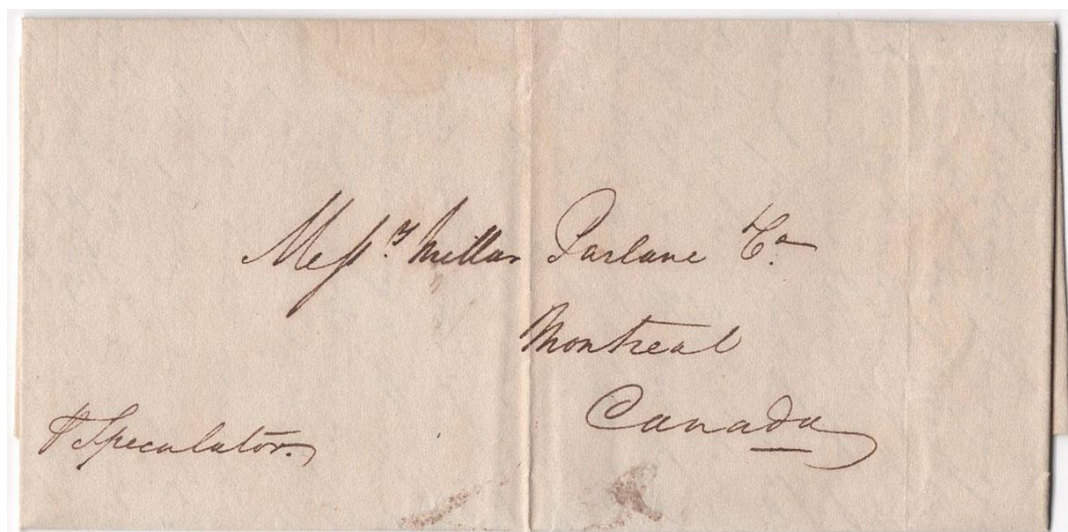 Messrs. Millar Parlane Co.
Montreal
Canada
P Speculator.